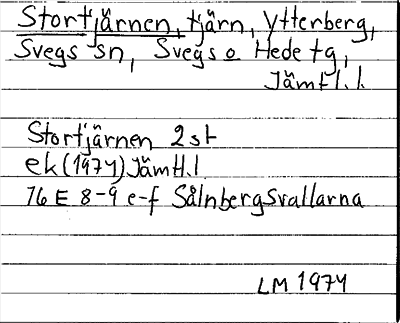 Stortjärnen, tjärn, Ytterberg,
Svegs sn, Svegs o Hede tg,
Jämtl.l.
Stortjärnen 2 st
ek (1974) Jämtl.l
16 E 8-9 e-f Sålnbergsvallarna
LM 1974